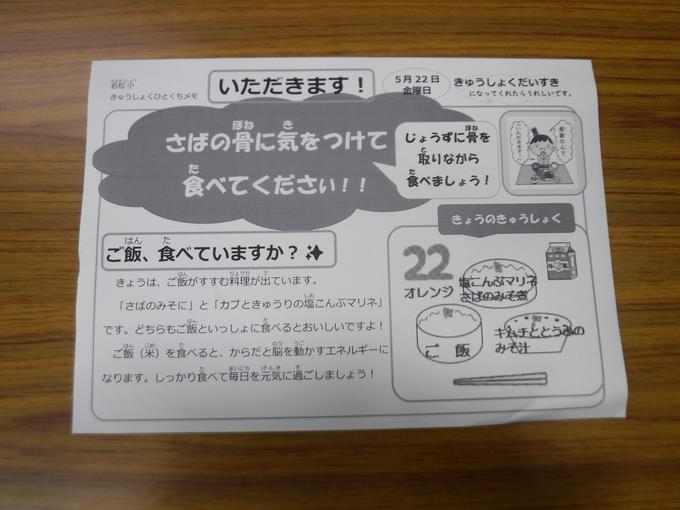 若松小
きゅうしょくひとくちメモ
いただきます！
5月22日
金曜日
きゅうしょくだいすき
になってくれたらうれしいです。
さばの骨に気をつけて
食べてください！！
じょうずに骨を
取りながら
食べましょう！
感謝の心で
いただきます！
ご飯、食べていますか？
きょうは、ご飯がすすむ料理が出ています。
「さばのみそに」と「カブときゅうりの塩こんぶマリネ」
です。どちらもご飯といっしょに食べるとおいしいですよ！
ご飯（米）を食べると、からだと脳を動かすエネルギーに
なります。しっかり食べて毎日を元気に過ごしましょう！
きょうのきゅうしょく
22
オレンジ
塩こんぶマリネ
さばのみそ煮
ご　飯
キムチととうふの
みそ汁